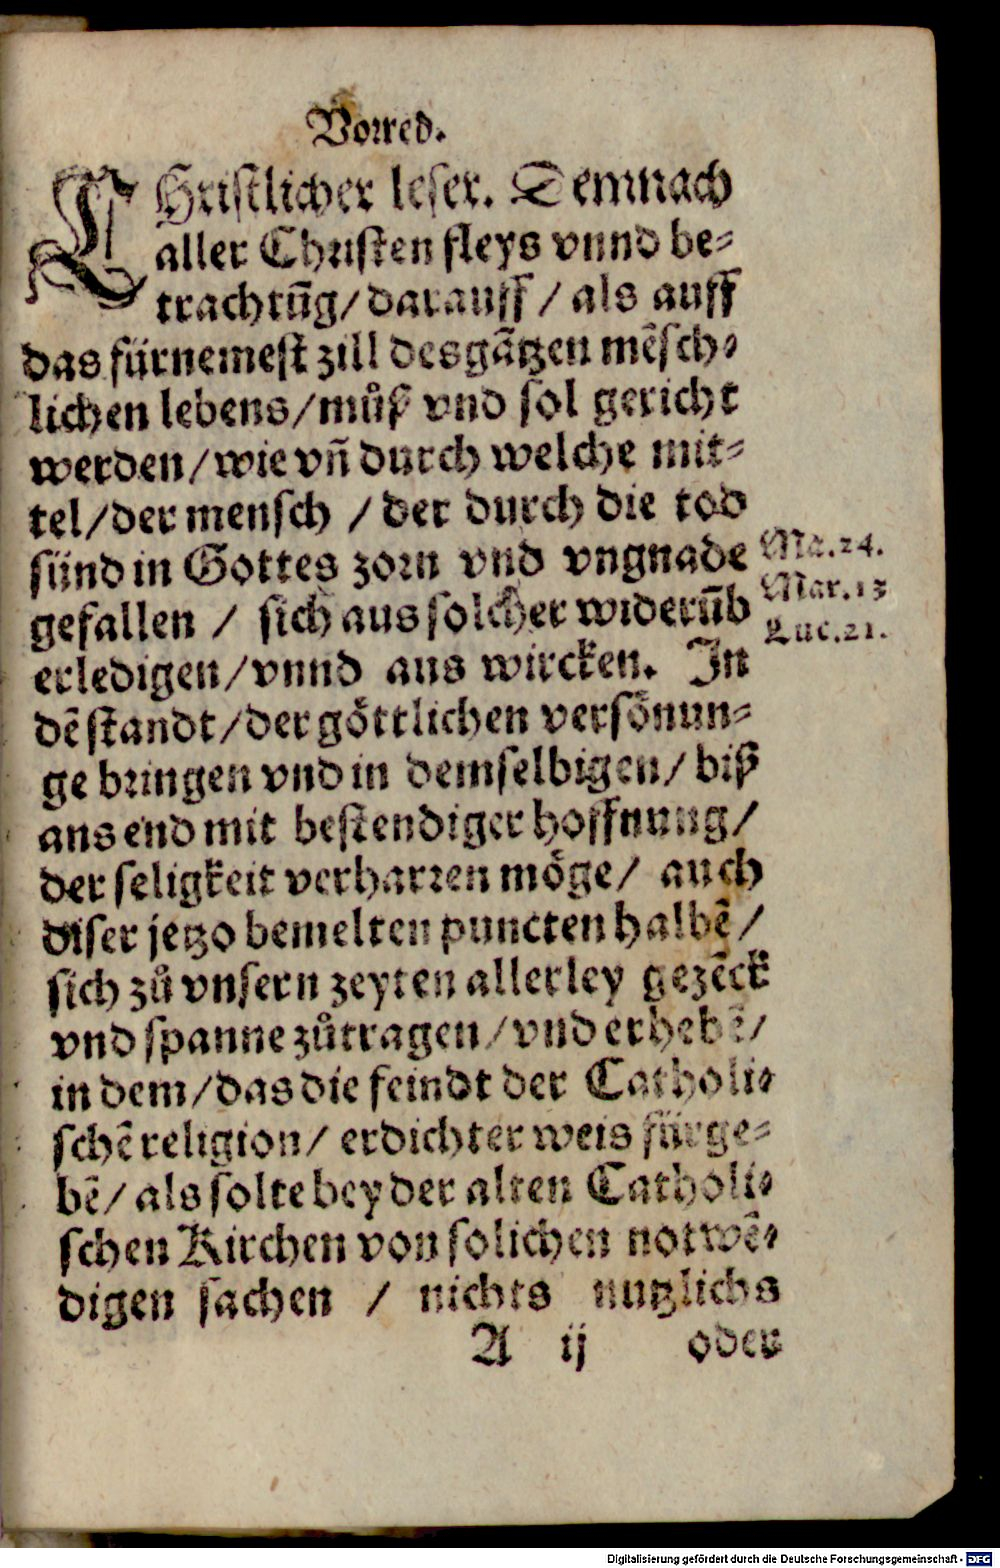 Vorred.
CHristlicher leser. Demnach
aller Christen fleys vnnd be⸗
trachtūg/ darauff / als auff
das fürnemest zill des gātzen mēsch⸗
lichen lebens/ můß vnd sol gericht
werden/ wie vn̄ durch welche mit⸗
tel/ der mensch / der durch die tod
sünd in Gottes zorn vnd vngnade
gefallen / sich aus solcher widerūb
erledigen/ vnnd aus wircken. In
dē standt/ der göttlichen versönun⸗
ge bringen vnd in demselbigen/ biß
ans end mit bestendiger hoffnung/
der seligkeit verharren möge/ auch
diser jetzo bemelten puncten halbē/
sich zů vnsern zeyten allerley gezēck
vnd spanne zůtragen/ vnd erhebē/
in dem/ das die feindt der Catholi⸗
schē religion/ erdichter weis fürge⸗
bē/ als solte bey der alten Catholi⸗
schen Kirchen von solichen notwē⸗
digen sachen / nichts nutzlichs
A ij oder
Ma. 24.
Mar. 13
Luc. 21.
Digitalisierung gefördert durch die Deutsche Forschungsgemeinschaft - DFG